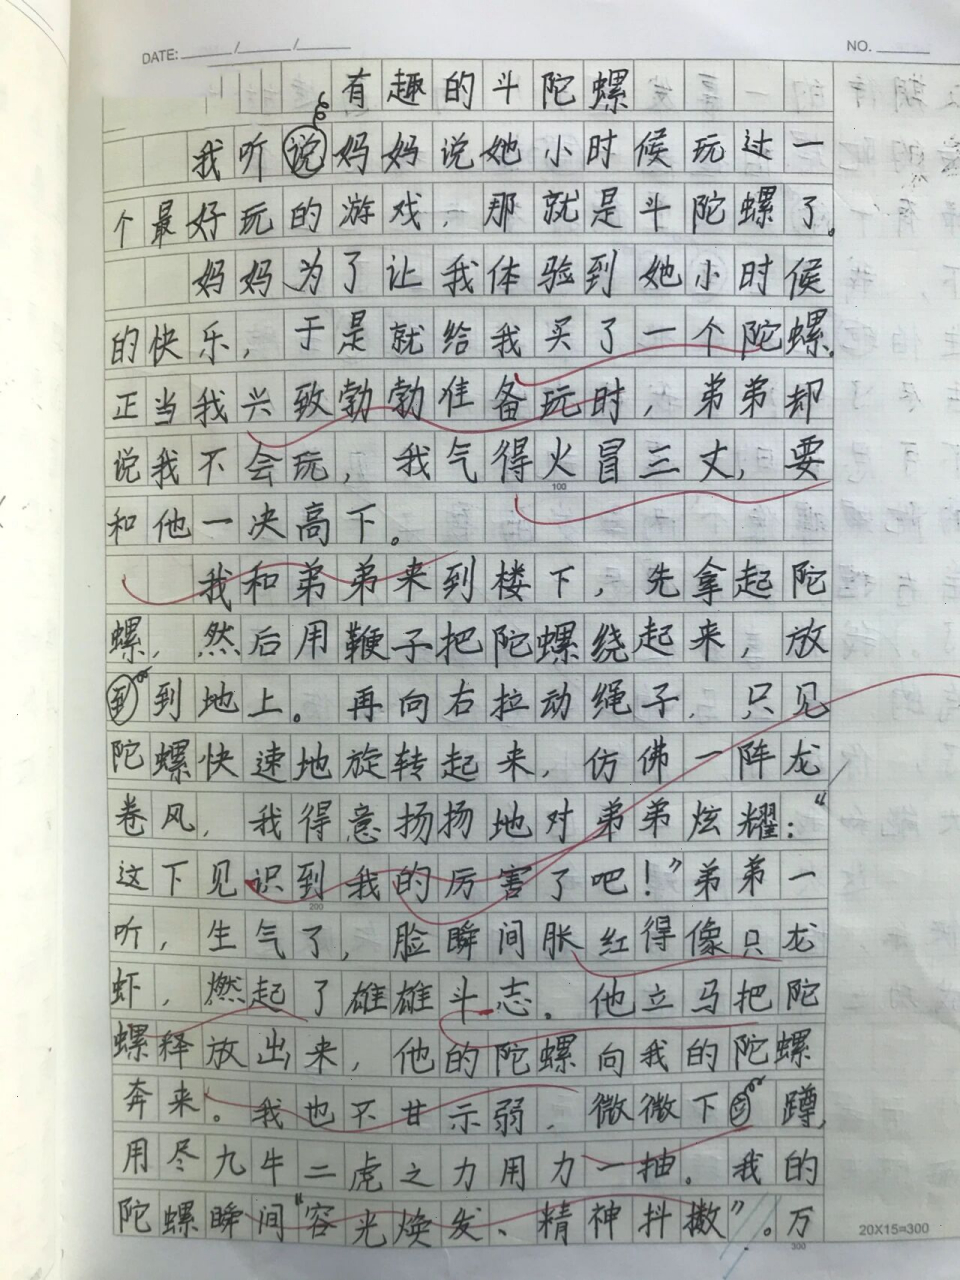 DATE: ____/____/____ NO. ____
有趣的斗陀螺
我听说妈妈说她小时候玩过一
个最好玩的游戏，那就是斗陀螺了。
妈妈为了让我体验到她小时候
的快乐，于是就给我买了一个陀螺。
正当我兴致勃勃准备玩时，弟弟却
说我不会玩，我气得火冒三丈，要
100
和他一决高下。
我和弟弟来到楼下，先拿起陀
螺，然后用鞭子把陀螺绕起来，放
到到地上。再向右拉动绳子，只见
陀螺快速地旋转起来，仿佛一阵龙
卷风，我得意扬扬地对弟弟炫耀：“
这下见识到我的厉害了吧！”弟弟一
200
听，生气了，脸瞬间胀红得像只龙
虾，燃起了雄雄斗志。他立马把陀
螺释放出来，他的陀螺向我的陀螺
奔来。我也不甘示弱，微微下蹲，
用尽九牛二虎之力用力一抽。我的
陀螺瞬间“容光焕发、精神抖擞”。万
20X15=300
300